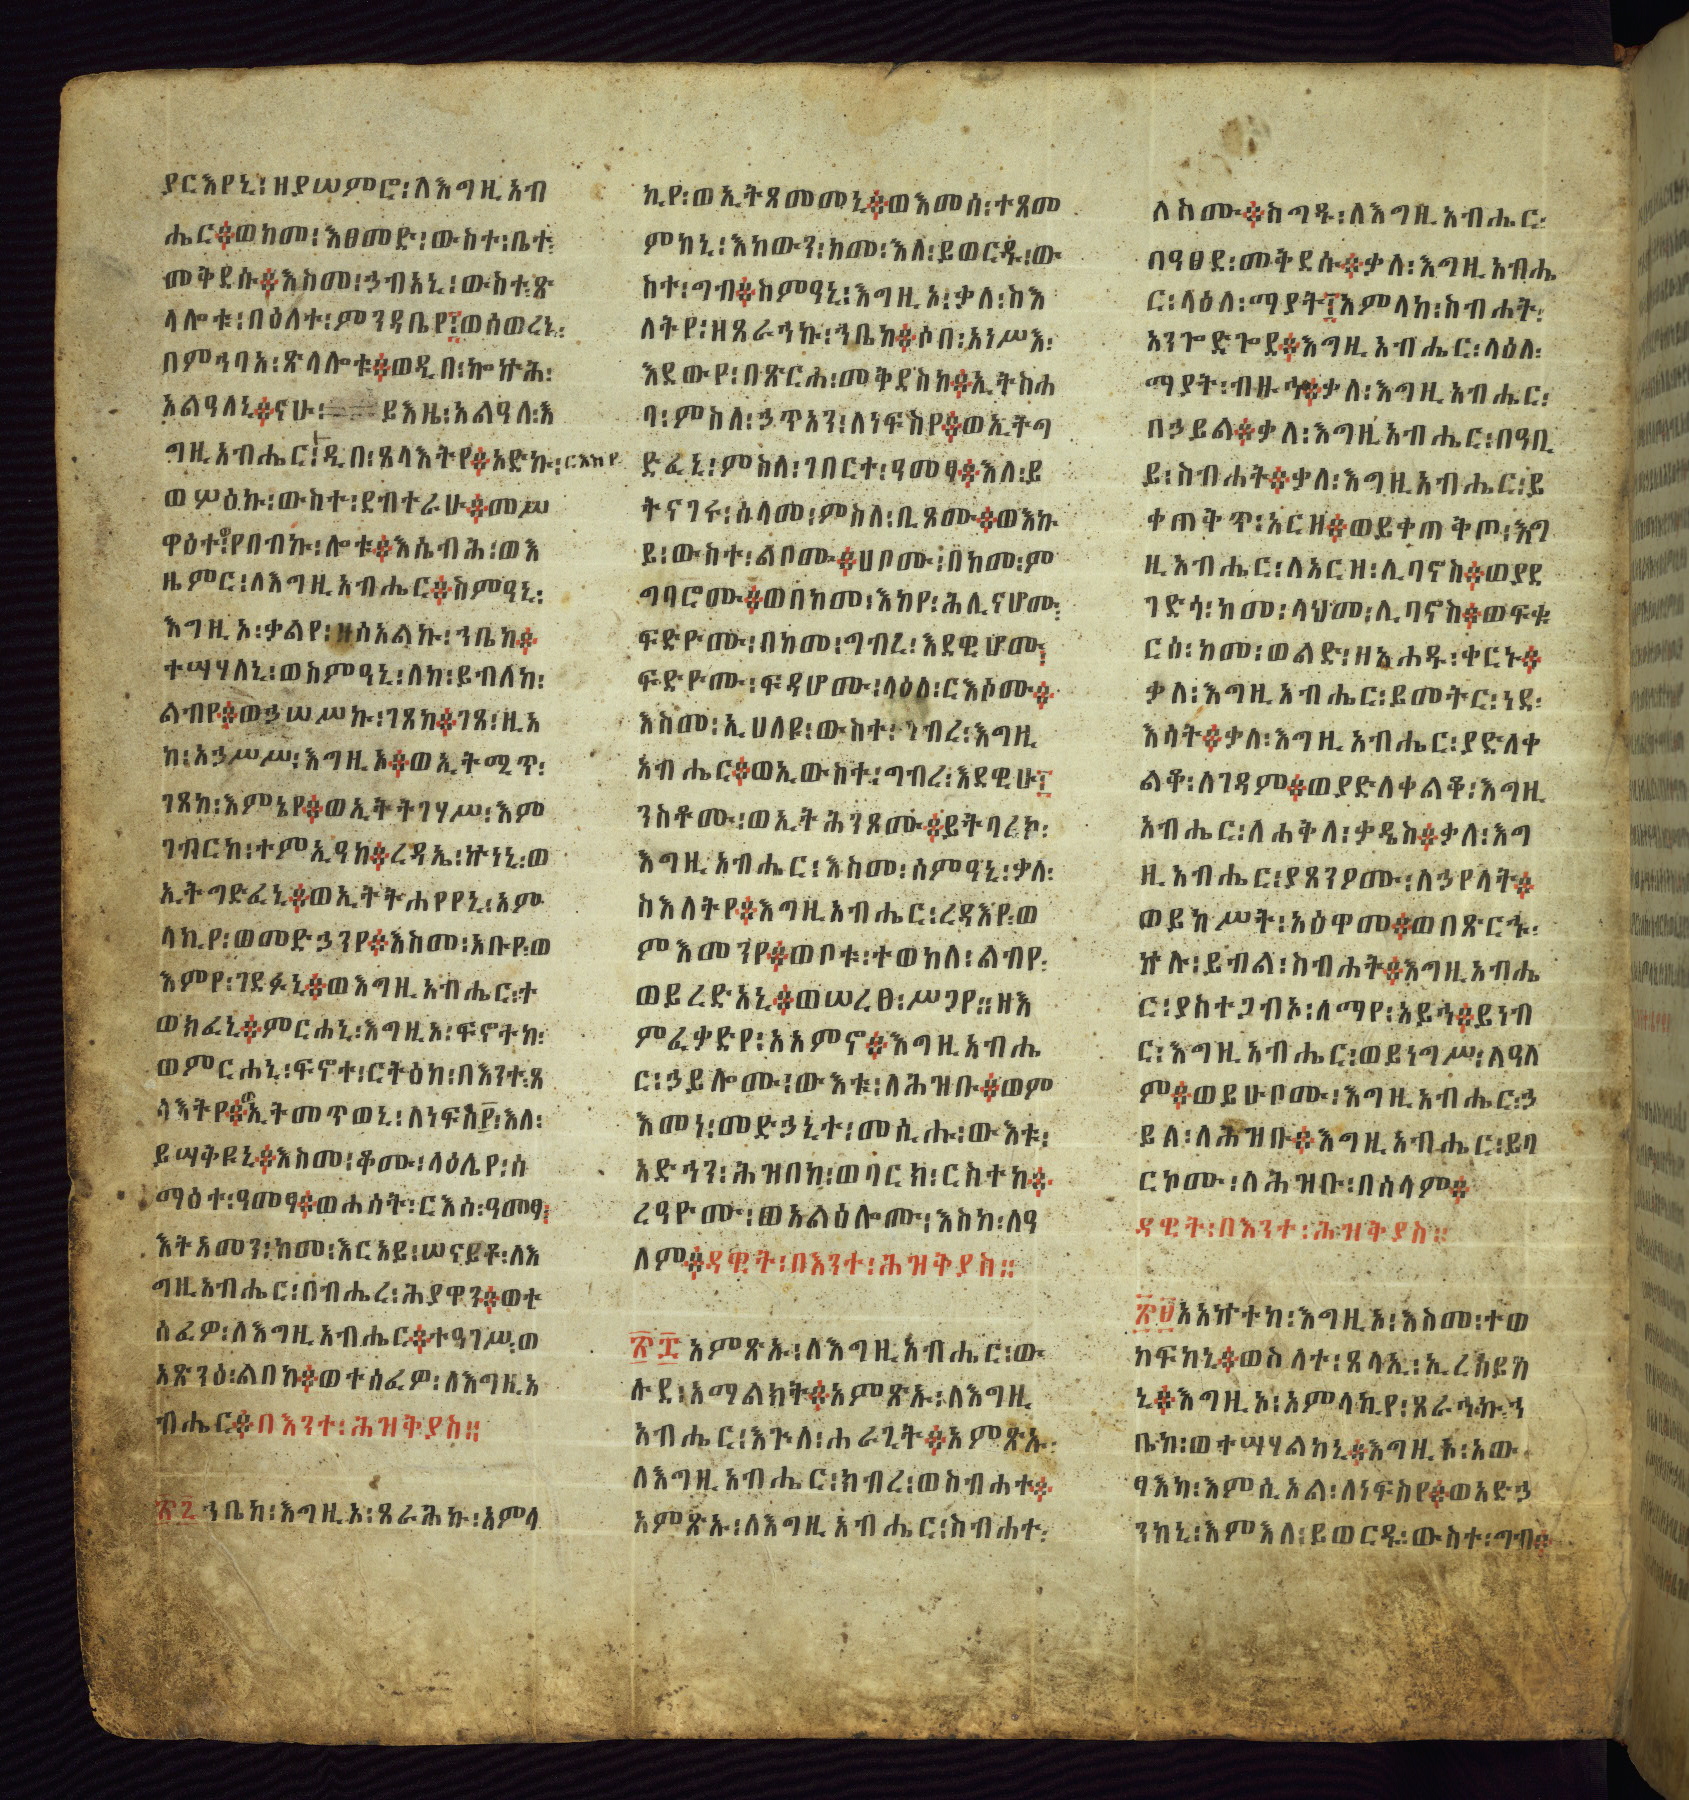 ያርእየኒ፡ዘያሠምሮ፡ለእግዚአብ
ሔር፨ወከመ፡እፀመድ፡ውስተ፡ቤተ፡
መቅደሱ፨እስመ፡ኃብአኒ፡ውስተ፡ጽ
ላሎቱ፡በዕለተ፡ምንዳቤየ፤ወሰወረኒ፡
በምኅባአ፡ጽላሎቱ፨ወዲበ፡ኰኵሕ፡
አልዓለኒ፨ናሁ፡ ይእዜ፡አልዓለ፡እ
ግዚአብሔር፡ዲበ፡ጸላእትየ፨አድኩ፡ርእስየ
ወሦዕኩ፡ውስተ፡ደብተራሁ፨መሥ
ዋዕተ፡የበብኩ፡ሎቱ፨እሴብሕ፡ወእ
ዜምር፡ለእግዚአብሔር፨ስምዓኒ፡
እግዚአ፡ቃልየ፡ዘሰአልኩ፡ኀቤከ፨
ተሣሃለኒ፡ወስምዓኒ፡ለከ፡ይብለከ፡
ልብየ፨ወኃሠሥኩ፡ገጸከ፨ገጸ፡ዚአ
ከ፡አኃሥሥ፡እግዚኦ፨ወኢትሚጥ፡
ገጸከ፡እምኔየ፨ወኢትትገሃሥ፡እም
ገብርከ፡ተምኢዓከ፨ረዳኤ፡ኵነኒ፡ወ
ኢትግድፈኒ፨ወኢትትሐየየኒ፡አም
ላኪየ፡ወመድኃንየ፨እስመ፡አቡየ፡ወ
እምየ፡ገደፉኒ፨ወእግዚአብሔር፡ተ
ወክፈኒ፨ምርሐኒ፡እግዚአ፡ፍኖተከ፡
ወምርሐኒ፡ፍኖተ፡ርትዕከ፡በእንተ፡ጸ
ላእትየ፨ወኢትመጥወኒ፡ለነፍሰ፡እለ፡
ይሣቅዩኒ፨እስመ፡ቆሙ፡ላዕሌየ፡ሰ
ማዕተ፡ዓመፃ፨ወሐሰት፡ርእሰ፡ዓመፃ፤
እትአመን፡ከመ፡እርአይ፡ሠናይቶ፡ለእ
ግዚአብሔር፡በብሔረ፡ሕያዋን፨ወተ
ሰፈዎ፡ለእግዚአብሔር፨ተዓገሥ፡ወ
አጽንዕ፡ልበከ፨ወተሰፈዎ፡ለእግዚአ
ብሔር፨በእንተ፡ሕዝቅያስ።
፳፯ኀቤከ፡እግዚአ፡ጸራሕኩ፡አምላ
ኪየ፡ወኢትጸመመኒ፨ወእመሰ፡ተጸመ
ምከኒ፡እከውን፡ከመ፡እለ፡ይወርዱ፡ው
ስተ፡ግብ፨ስምዓኒ፡እግዚኦ፡ቃለ፡ስእ
ለትየ፡ዘጸራኅኩ፡ኀቤከ፨ሶበ፡አነሥእ፡
እደውየ፡በጽርሐ፡መቅደስከ፨ኢትስሐ
ባ፡ምስለ፡ኃጥአን፡ለነፍስየ፨ወኢትግ
ድፈኒ፡ምስለ፡ገበርተ፡ዓመፃ፨እለ፡ይ
ትናገሩ፡ሰላመ፡ምስለ፡ቢጾሙ፨ወእኩ
ይ፡ውስተ፡ልቦሙ፨ሀቦሙ፡በከመ፡ም
ግባሮሙ፨ወበከመ፡እከየ፡ሕሊናሆሙ፡
ፍድዮሙ፡በከመ፡ግብረ፡እደዊሆሙ፤
ፍድዮሙ፡ፍዳሆሙ፡ላዕለ፡ርእሶሙ፨
እስመ፡ኢሀለዩ፡ውስተ፡ግብረ፡እግዚ
አብሔር፨ወኢውስተ፡ግብረ፡እደዊሁ፤
ንስቶሙ፡ወኢትሕንጾሙ፨ይትባረክ፡
እግዚአብሔር፡እስመ፡ሰምዓኒ፡ቃለ፡
ስእለትየ፨እግዚአብሔር፡ረዳእየ፡ወ
ምእመንየ፨ወቦቱ፡ተወከለ፡ልብየ፡
ወይረድአኒ፨ወሠረፀ፡ሥጋየ።ዘእ
ምፈቃድየ፡አአምኖ፨እግዚአብሔ
ር፡ኃይሎሙ፡ውእቱ፡ለሕዝቡ፨ወም
እመነ፡መድኃኒተ፡መሲሑ፡ውእቱ፡
አድኅን፡ሕዝበከ፡ወባርክ፡ርስተከ፨
ረዓዮሙ፡ወአልዕሎሙ፡እስከ፡ለዓ
ለም፨ዳዊት፡በእንተ፡ሕዝቅያስ።
፳፰አምጽኡ፡ለእግዚአብሔር፡ው
ሉደ፡አማልክት፨አምጽኡ፡ለእግዚ
አብሔር፡እጕለ፡ሐራጊት፨አምጽኡ፡
ለእግዚአብሔር፡ክብረ፡ወስብሐተ፨
አምጽኡ፡ለእግዚአብሔር፡ስብሐተ፡
ለስሙ፨ስግዱ፡ለእግዚአብሔር፡
በዓፀደ፡መቅደሱ፨ቃለ፡እግዚአብሔ
ር፡ላዕለ፡ማያት፤አምላከ፡ስብሐት፡
አንጐድጐደ፨እግዚአብሔር፡ላዕለ፡
ማያት፡ብዙኅ፨ቃለ፡እግዚአብሔር፡
በኃይል፨ቃለ፡እግዚአብሔር፡በዓቢ
ይ፡ስብሐት፨ቃለ፡እግዚአብሔር፡ይ
ቀጠቅጥ፡አርዘ፨ወይቀጠቅጦ፡እግ
ዚአብሔር፡ለአርዘ፡ሊባኖስ፨ወያደ
ገድጎ፡ከመ፡ላህመ፡ሊባኖስ፨ወፍቁ
ርሰ፡ከመ፡ወልድ፡ዘአሐዱ፡ቀርኑ፨
ቃለ፡እግዚአብሔር፡ይመትር፡ነደ፡
እሳት፨ቃለ፡እግዚአብሔር፡ያድለቀ
ልቆ፡ለገዳም፨ወያድለቀልቆ፡እግዚ
አብሔር፡ለሐቅለ፡ቃዴስ፨ቃለ፡እግ
ዚአብሔር፡ያጸንዖሙ፡ለኃየላት፨
ወይከሥት፡አዕዋመ፨ወበጽርሑ፡
ኵሉ፡ይብል፡ስብሐት፨እግዚአብሔ
ር፡ያስተጋብኦ፡ለማየ፡አይኅ፨ይነብ
ር፡እግዚአብሔር፡ወይነግሥ፡ለዓለ
ም፨ወይሁቦሙ፡እግዚአብሔር፡ኃ
ይለ፡ለሕዝቡ፨እግዚአብሔር፡ይባ
ርኮሙ፡ለሕዝቡ፡በሰላም፨
ዳዊት፡በእንተ፡ሕዝቅያስ።
፳፱አአኵተከ፡እግዚኦ፡እስመ፡ተወ
ከፍከኒ፨ወስላተ፡ጸላኢ፡ኢረሰይከ
ኒ፨እግዚኦ፡አምላኪየ፡ጸራኅኩ፡ኀ
ቤከ፡ወተሣሃልከኒ፨እግዚኦ፡አው
ፃእካ፡እምሲኦል፡ለነፍስየ፨ወአድኃ
ንከኒ፡እምእለ፡ይወርዱ፡ውስተ፡ግብ፨